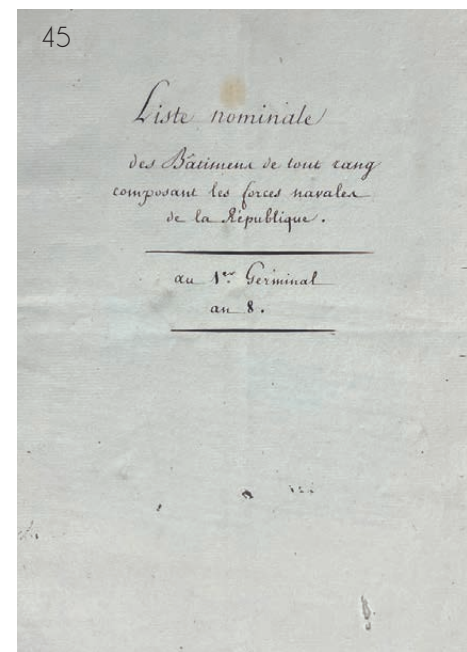 45
Liste nominale
des Bâtimens de tout rang
composant les forces navales
de la République.
au 1er. Germinal
an 8.